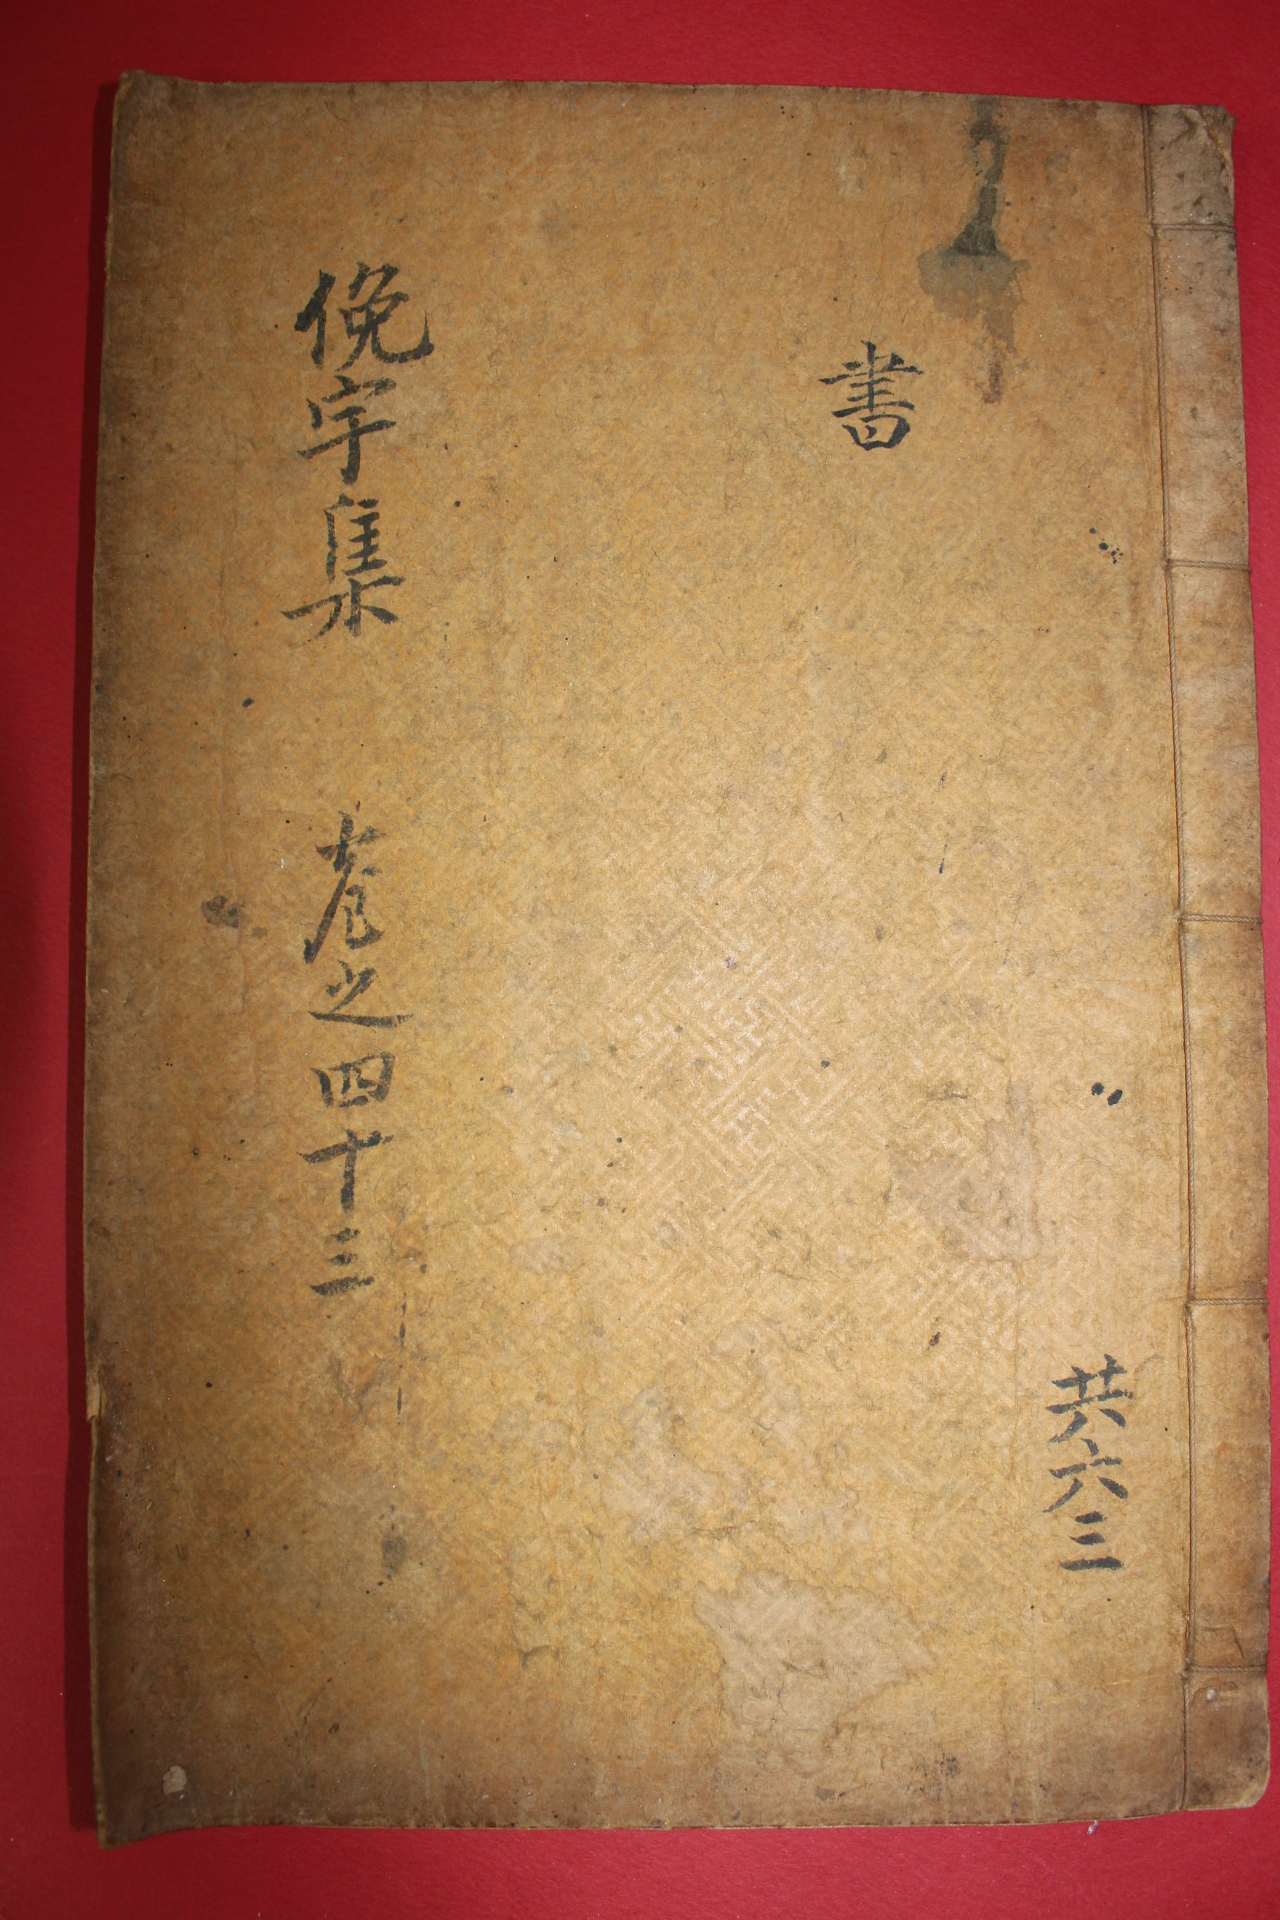 共六三
書
俛宇集 卷之四十三